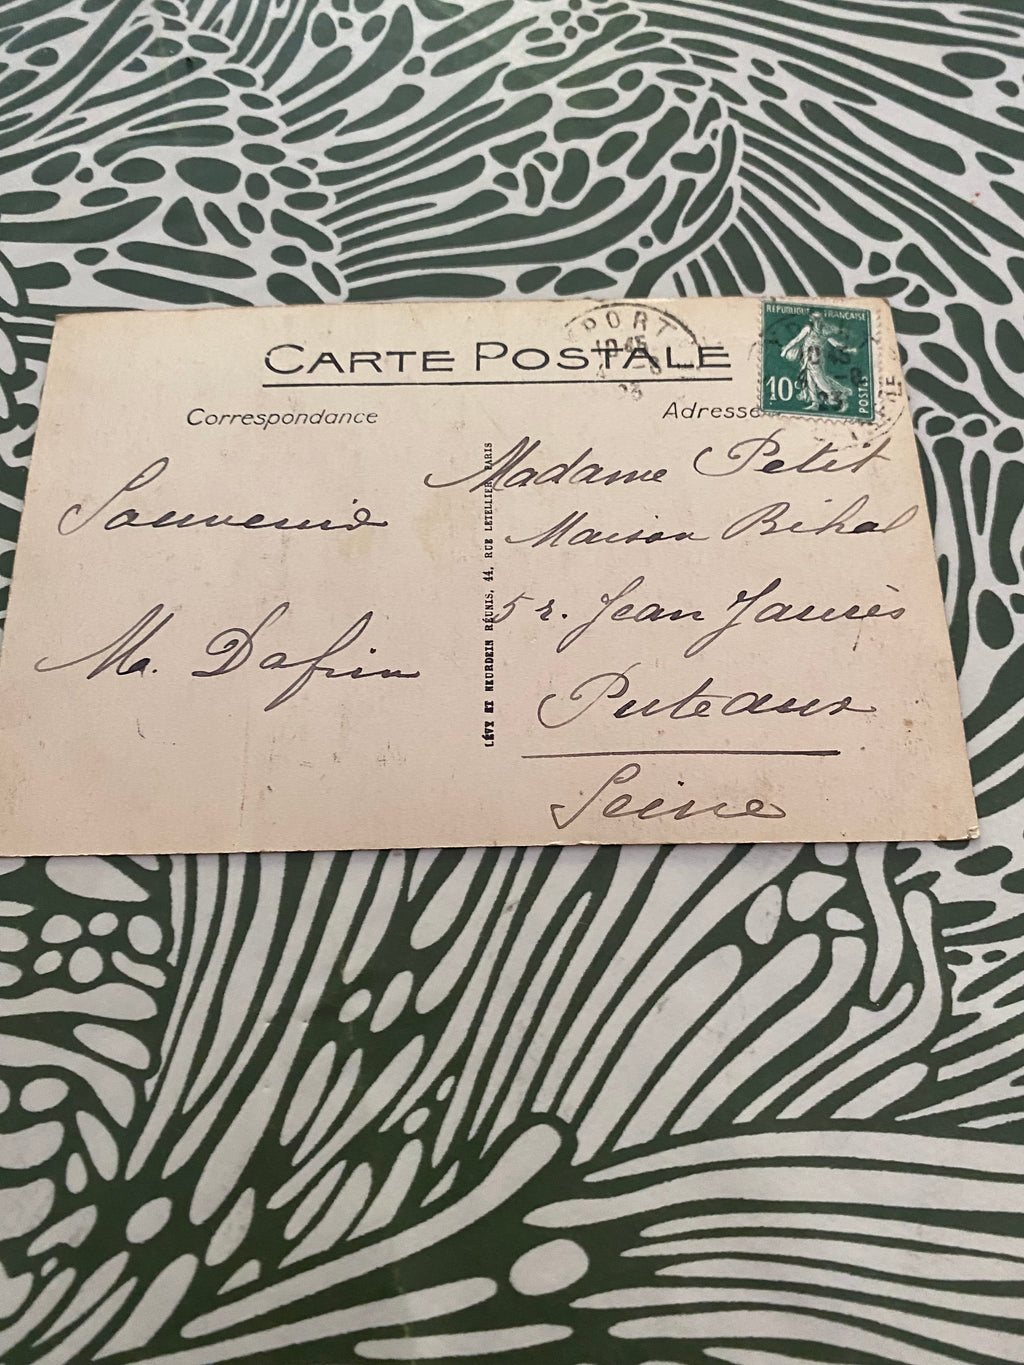 CARTE POSTALE
Correspondance
Adresse
Souvenir
M. Dafin
LÉVY ET NEURDEIN RÉUNIS, 44, RUE LETELLIER, PARIS
Madame Petit
Maison Bihal
5 r. Jean Jaurès
Puteaux
Seine
REPUBLIQUE FRANÇAISE
10c
POSTES
PORT
10 45
23